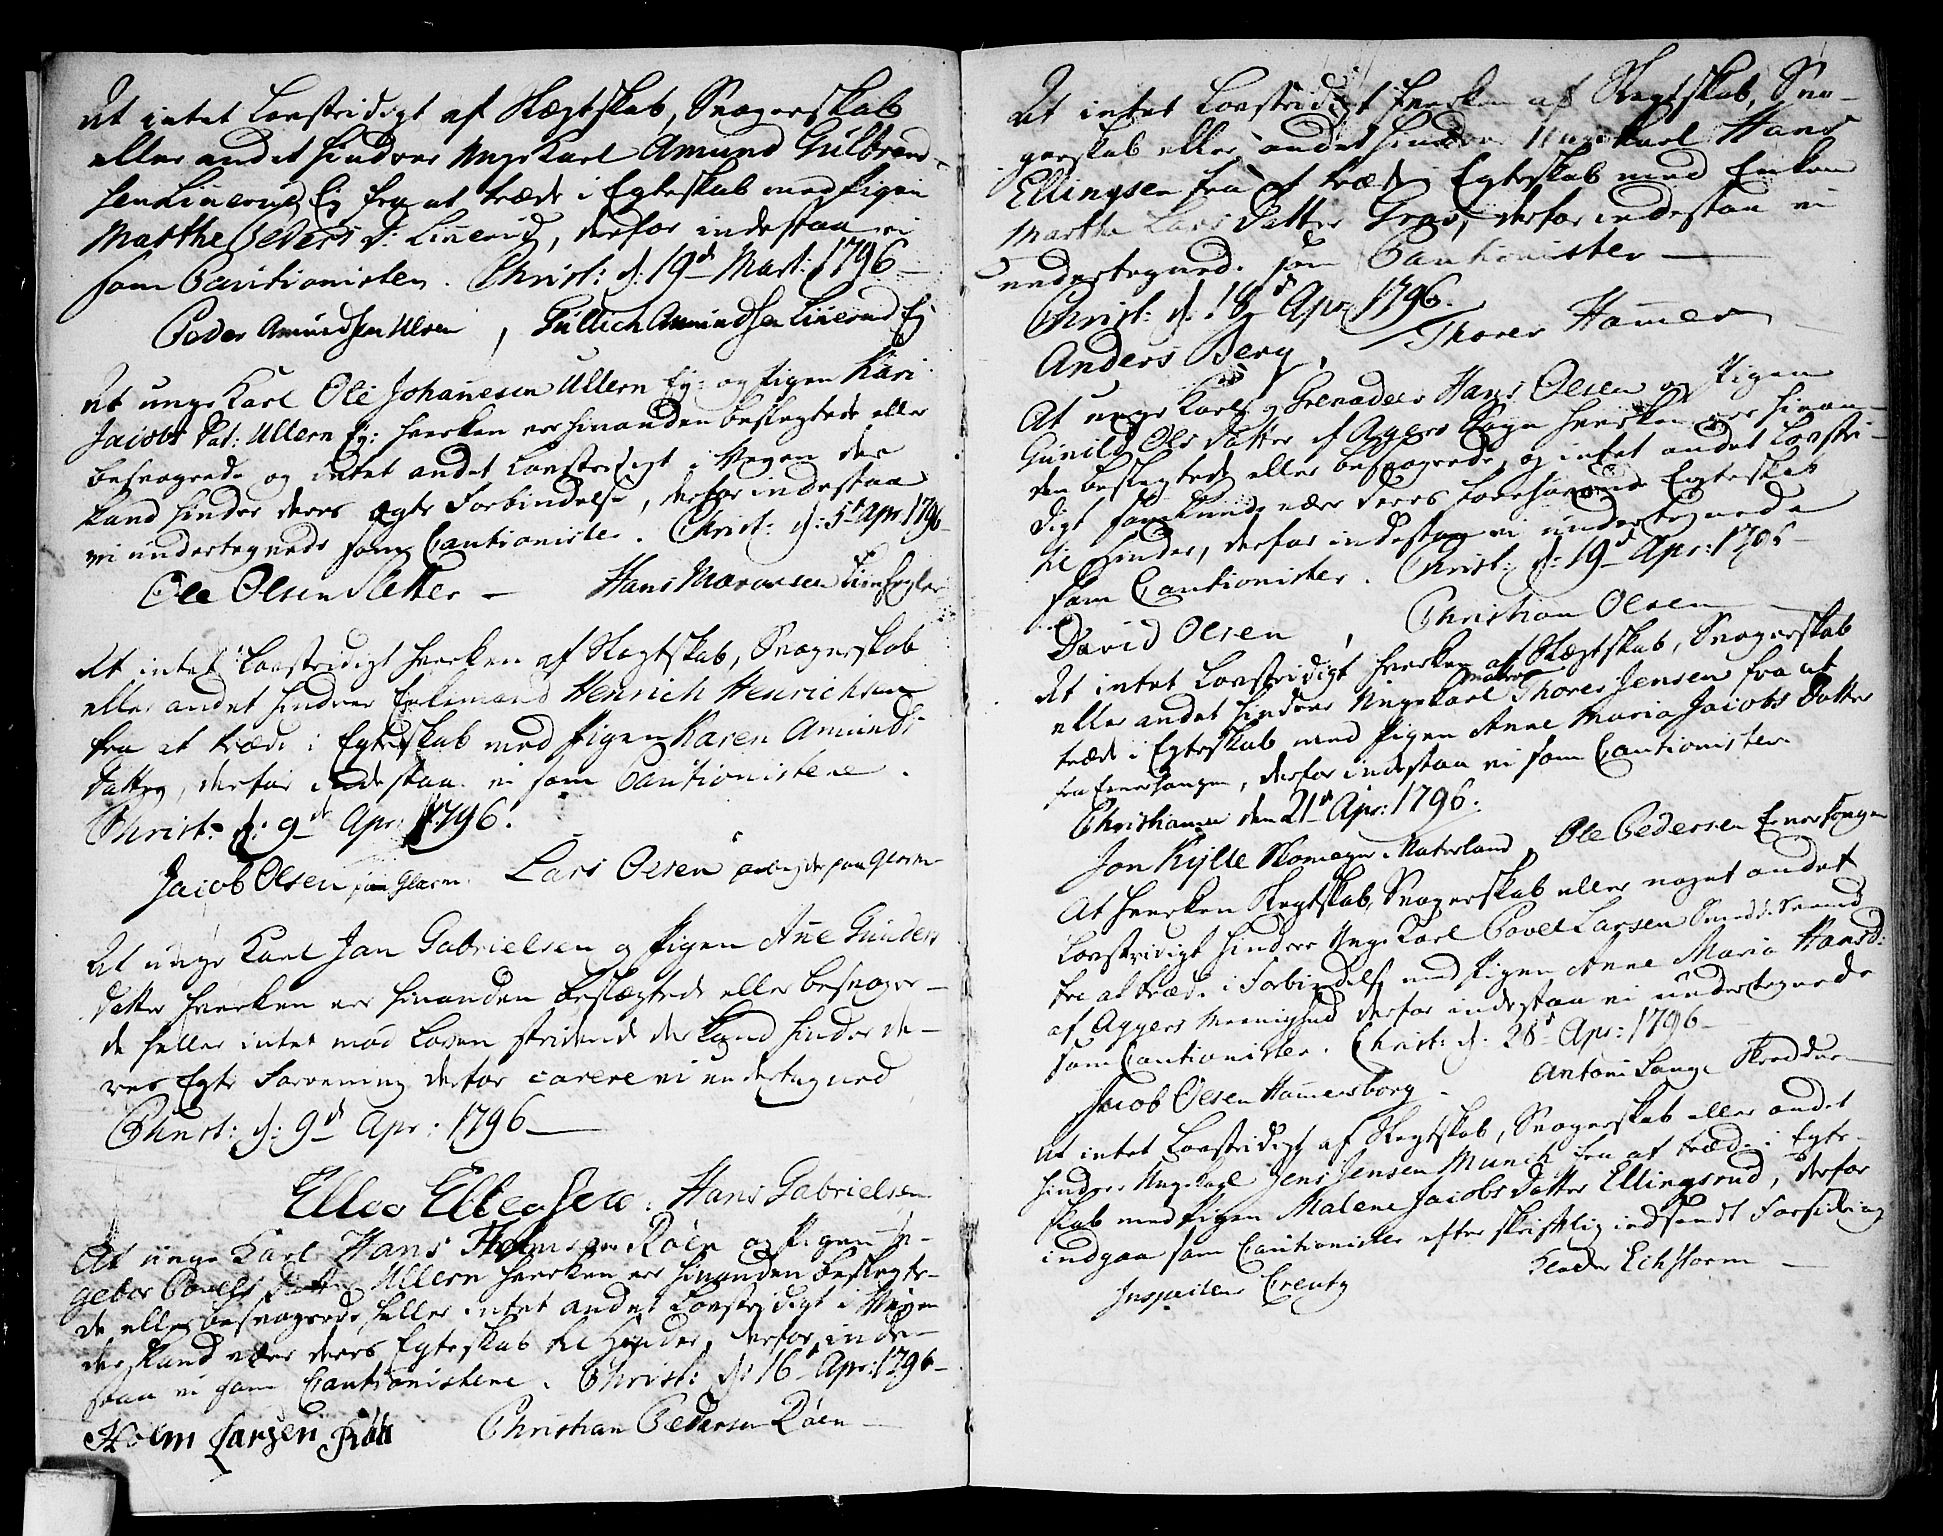 At intet Lovstridigt af Slægtskab, Svogerskab
eller andet hindrer Unge Karl Amund Gulbrand-
sen Linerud Ej fra at træde i Egteskab med Pigen
Marthe Peders D: Linerud, derfor indestaa vi
som Cautionister. Christ: d: 19de Mart: 1796
Peder Amundsen Ulven, Gullich Amundsen Linerud Ej
At unge Karl Ole Johanesen Ullern Ej: og Pigen Kari
Jacobs Dat: Ullern Ej: hverken er hinanden beslegtede eller
besvogrede og intet andet Lovstridigt i Vejen der
kand hindre deres egte Forbindelse, derfor indestaa
vi undertegnede som Cautionister. Christ: d: 5te Apr 1796
Ole Olsen Sletter - Hans
At intet Lovstridigt hverken af Slegtskab, Svogerskab
eller andet hindrer Enkemand Henrich Henrichsen
fra at træde i Egteskab med Pigen Karen Amunds
Datter, derfor indestaa vi som Cautionistere.
Christ: d: 9de Apr: 1796.
Jacob Olsen paa Glasm. Lars Olsen arbeyder paa Glasm
At unge Karl Jan Gabrielsen og Pigen Anne Gunders
Datter hverken er hinanden beslægtede eller besvogre-
de heller intet mod Loven stridende der kand hindre de-
res Egte Forening derfor cavere vi undertegned
Christ: d: 9de Apr: 1796
Elleo Elleosen. Hans Gabrielsen
At unge Karl Hans Holmsen Röen og Pigen In-
gebor Povels Datter Ullern hverken er hinanden beslegte-
de eller besvogrede, heller intet andet Lovstridigt i Vejen
der kand være deres Egteskab til Hinder, derfor inde-
staa vi som Cautionistere. Christ: d: 16de Apr: 1796
Holm Larsen Röen Christian Pedersen Röen
At intet Lovstridigt hverken af Slegtskab, Svo-
gerskab eller andet hindrer Unge Karl Hans
Ellingsen fra at træde i Egteskab med Enken
Marthe Lars Datter Grav, derfor indestaa vi
undertegnede som Cautionister
Christ: d: 18de Apr 1796.
Anders Berg, Thorer Hamer
At unge Karl og Grenadeer Hans Olsen og Pigen
Gunild Ols Datter af Agers Sogn hverken er hinan-
den beslegtede eller besvogrede, og intet andet Lovstri-
digt som kunde være deres forehavende Egteskab
til Hinder, derfor indestaa vi undertegnede
som Cautionister. Christ: d: 19de Apr: 1796
David Olsen, Christian Olsen
At intet Lovstridigt hverken af Slægtskab, Svogerskab
eller andet hindrer Unge Karl Thorer Jensen fra at
træde i Egteskab med Pigen Anne Maria Jacobs Datter
fra Enerhougen, derfor indestaa vi som Cautionister.
Christiania den 21de Apr: 1796.
Jon Kylle Skomager i Vaterland, Ole Pedersen Enerhougen
At hverken Slegtskab, Svogerskab eller noget andet
Lovstridigt hindrer Unge Karl Povel Larsen Smedde Svend
fra at træde i Forbindelse med Pigen Anne Maria Hans D:
af Aggers Meenighed derfor indestaa vi undertegnede
som Cautionister. Christ: d: 28de Apr: 1796
Jacob Olsen Hamersborg. Antoni Lange Skredder
At intet Lovstridigt af Slegtskab, Svogerskab eller andet
hindrer Unge Karl Jens Jensen Munch fra at træde i Egte-
skab med Pigen Malene Jacobs Datter Ellingsrud, derfor
indgaa som Cautionister efter skriftlig indsendt Forsikring
Inspecteur Creutz Peder Eichstorm